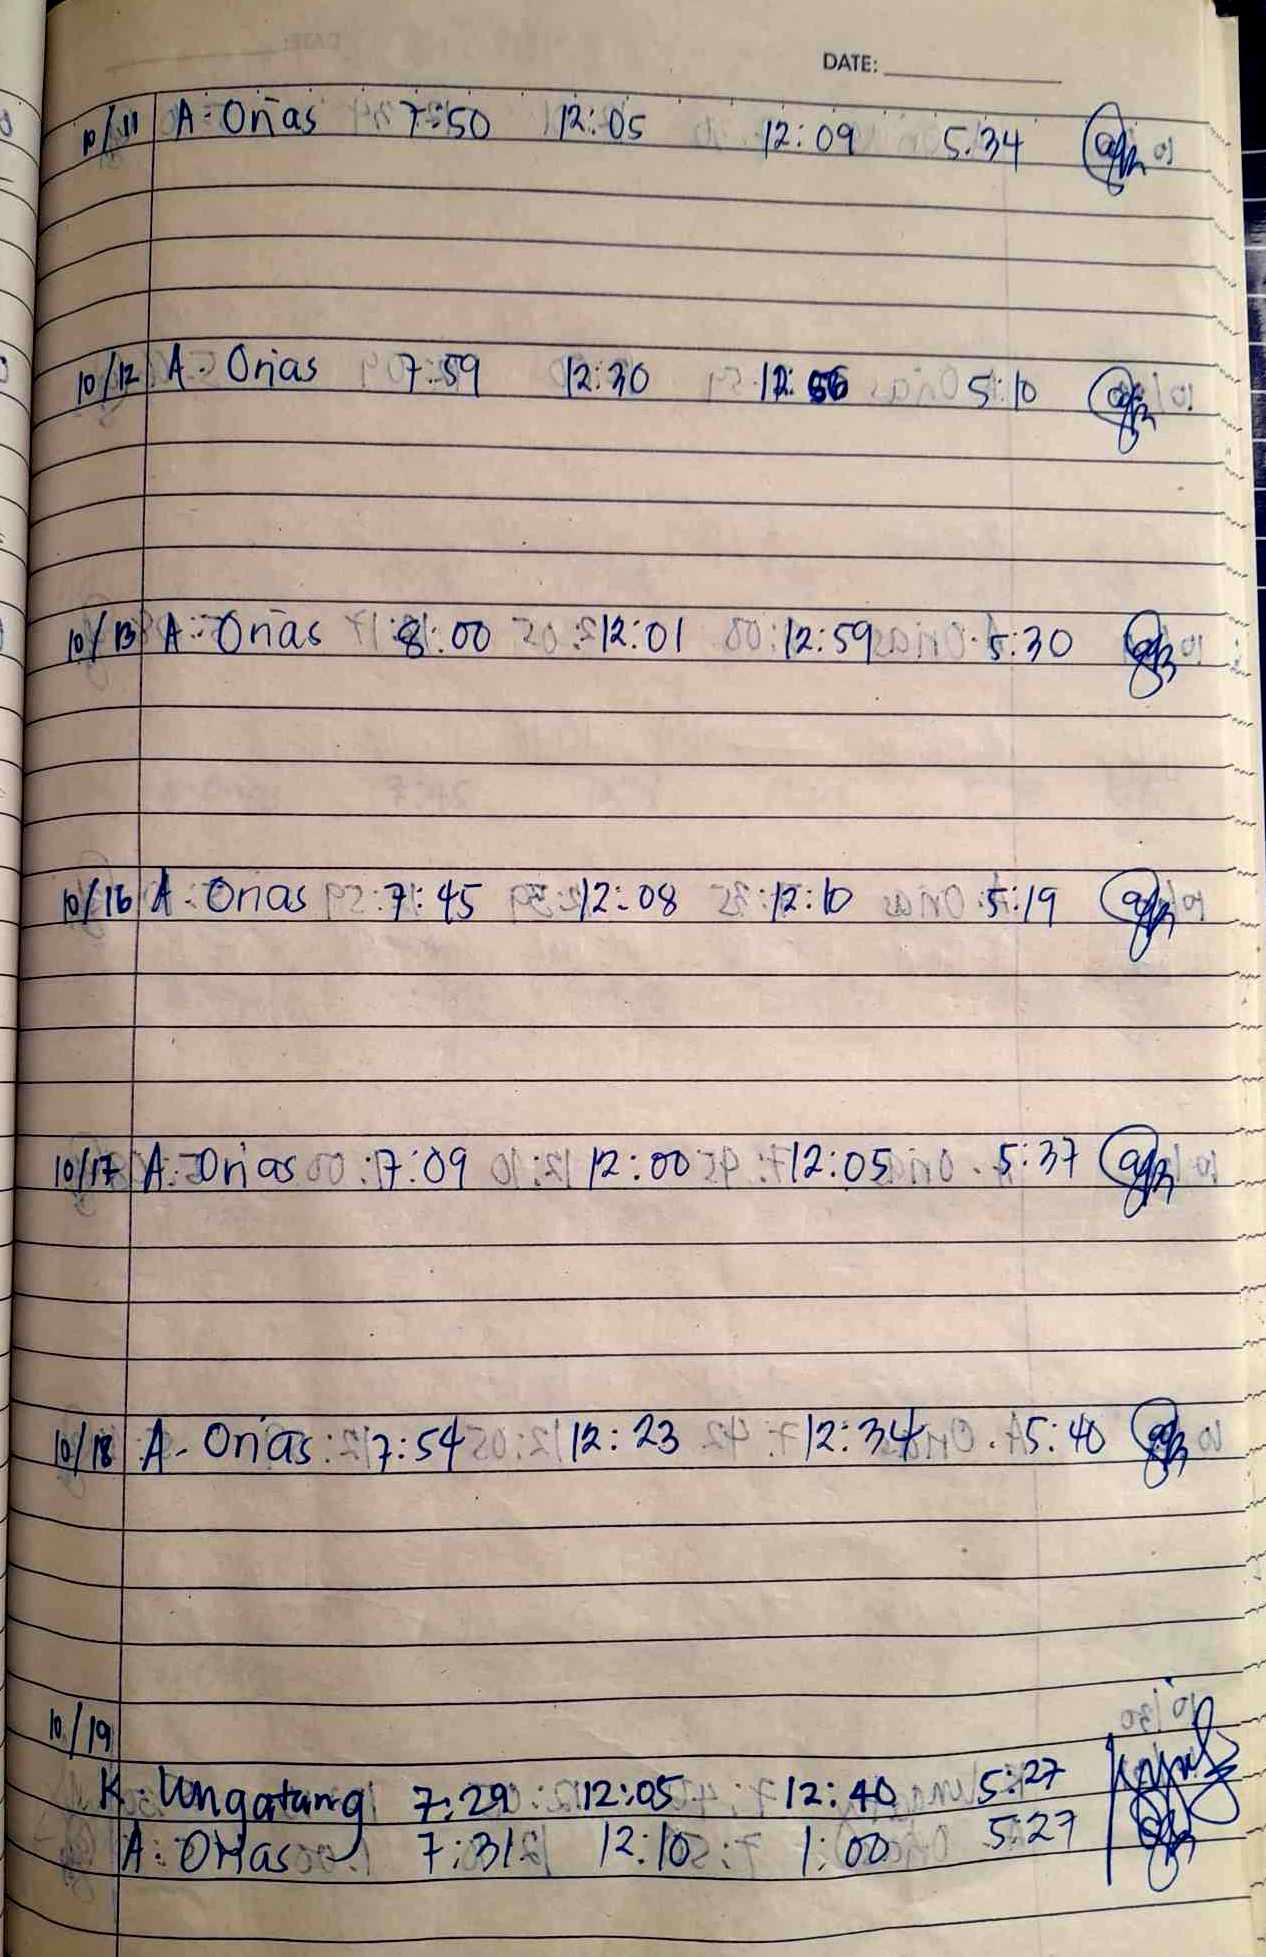 DATE:
10/11 A. Oñas 7:50 12:05 12:09 5:34
10/12 A. Oñas 7:59 12:30 12:56 5:10
10/13 A. Oñas 8:00 12:01 12:59 5:30
10/16 A. Oñas 7:45 12:08 12:10 5:19
10/17 A. Oñas 7:09 12:00 12:05 5:37
10/18 A. Oñas 7:54 12:23 12:34 5:40
10/19
K. Ungatang 7:29 12:05 12:40 5:27
A. Oñas 7:31 12:10 1:00 5:27